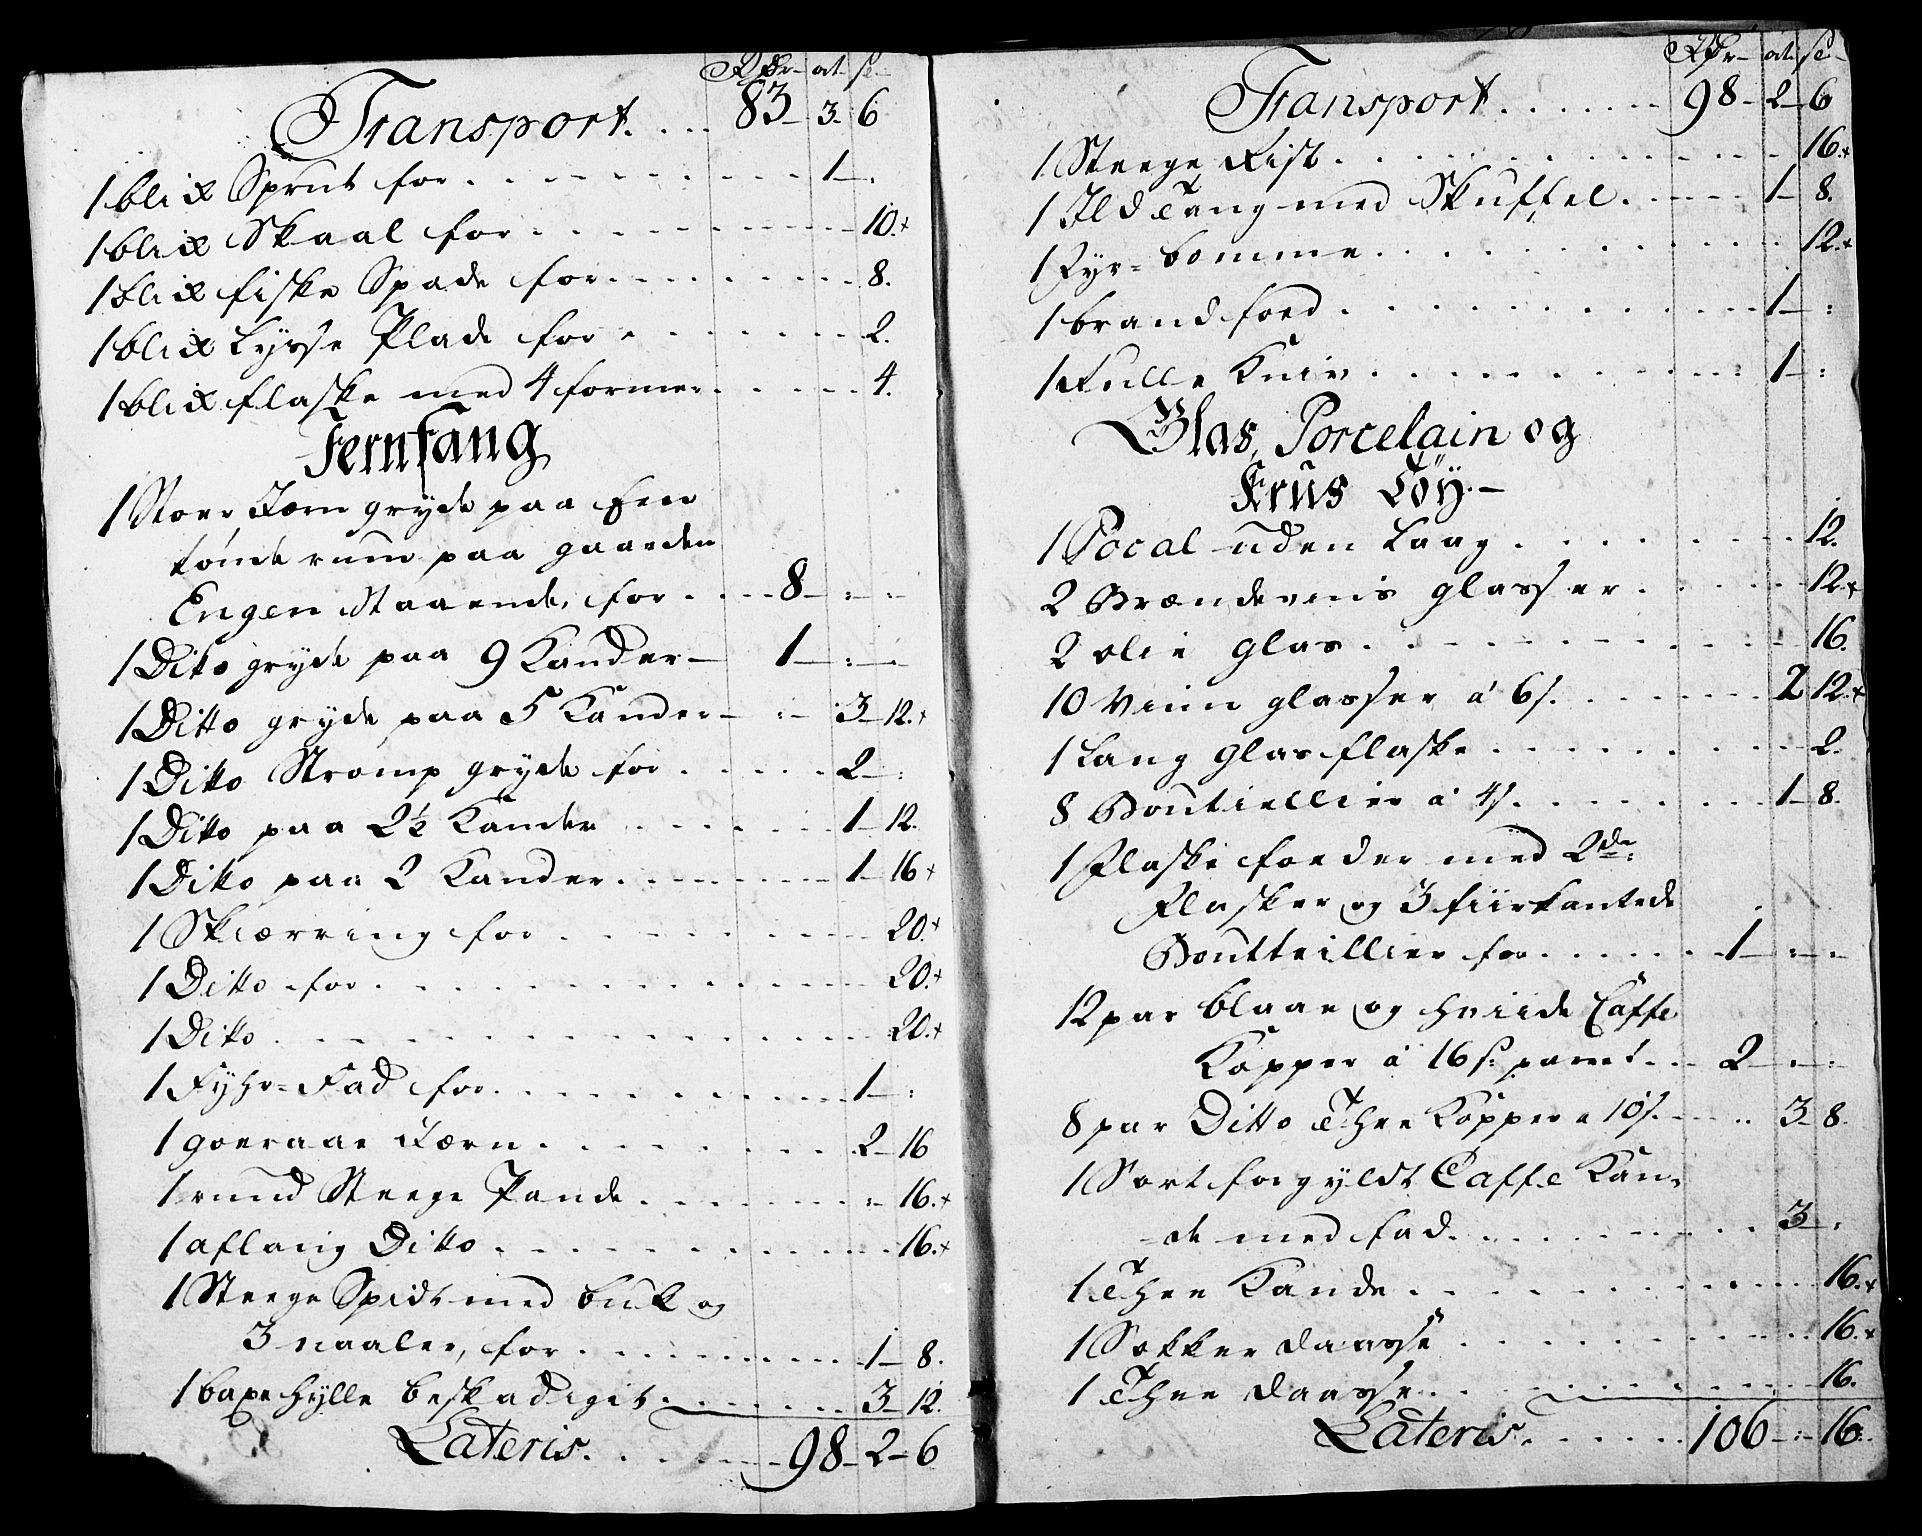 Rdr ort se
Transport. . . . 83 - 3. 6
1 blix Sprut for . . . . . . . . 1 - :
1 blix Skaal for . . . . . . . . 10. +
1 blix fiske Spade for . . . . . . . . 8.
1 blix Lysse Plade for . . . . . . . 2.
1 blix flaske med 4 former . . . . . 4.
Jernfang
1 Stor Jærn gryde paa Een
tønde rum paa gaarden
Engen staaende, for . . . . 8 - : -
1 Ditto gryde paa 9 Kander - 1 - : -
1 Ditto gryde paa 5 Kander - : - 3 - 12. +
1 Ditto Stromp gryde for . . . . . 2 - :
1 Ditto paa 2½ Kander . . . . . . 1 - 12.
1 Ditto paa 2 Kander . . . . . . . 1 - 16 +
1 Skiærring for . . . . . . . . . 20. +
1 Ditto for . . . . . . . . . . . . 20. +
1 Ditto . . . . . . . . . . . . . . 20. +
1 Fyhr=Fad for . . . . . . . . . . 1 - :
1 goeraae Jærn . . . . . . . . . . 2 - 16
1 rund Steege Pande . . . . . . . : 16. +
1 aflang Ditto . . . . . . . . . . . 16. +
1 Steege Spidt med buk og
3 naaler, for . . . . . . . . . . 1 - 8.
1 baxe hylle beskadiget . . . . . . 3 - 12.
Lateris . . . . . . 98 - 2 - 6
Rdr ort se
Transport . . . . . . 98 - 2 - 6
1 Steege Rist . . . . . . . . . . . . 16. +
1 Ild Tang med Skuffel . . . . . 1 - 8.
1 Fyr=bomme . . . . . . . . . . . 12. +
1 brand foed . . . . . . . . . . . 1 - :
1 Rulle Kniv . . . . . . . . . . . 1 - :
Glas, Porcelain og
Krus Töy. -
1 Pocal uden Laag . . . . . . . . 12.
2 Brændeviis glasser . . . . . 12. +
2 olie glas . . . . . . . . . . . 16.
10 Viin glasser á 6 s. . . . . . . 2 12. +
1 Lang Glas flaske . . . . . . . . 2.
8 Boutiellier á 4 s. . . . . . . . 1 - 8.
1 Flaske foeder med 2de
Flasker og 3 fiirkantede
Boutteillier for . . . . . . 1 - : -
12 par blaae og hviide Caffe
Kopper á 16 s: parret . . 2 - : - :
8 par Ditto Thee Kopper a 10 s. . . . 3 - 8.
1 Sort forgyldt Caffe Kan=
de med fad . . . . . . . . . . 3 - :
1 Thee Kande . . . . . . . . . . . 16. +
1 Sokker daasse . . . . . . . . . 16. +
1 Thee daasse . . . . . . . . . . 16.
Lateris . . . . . . 106 - : - 16.